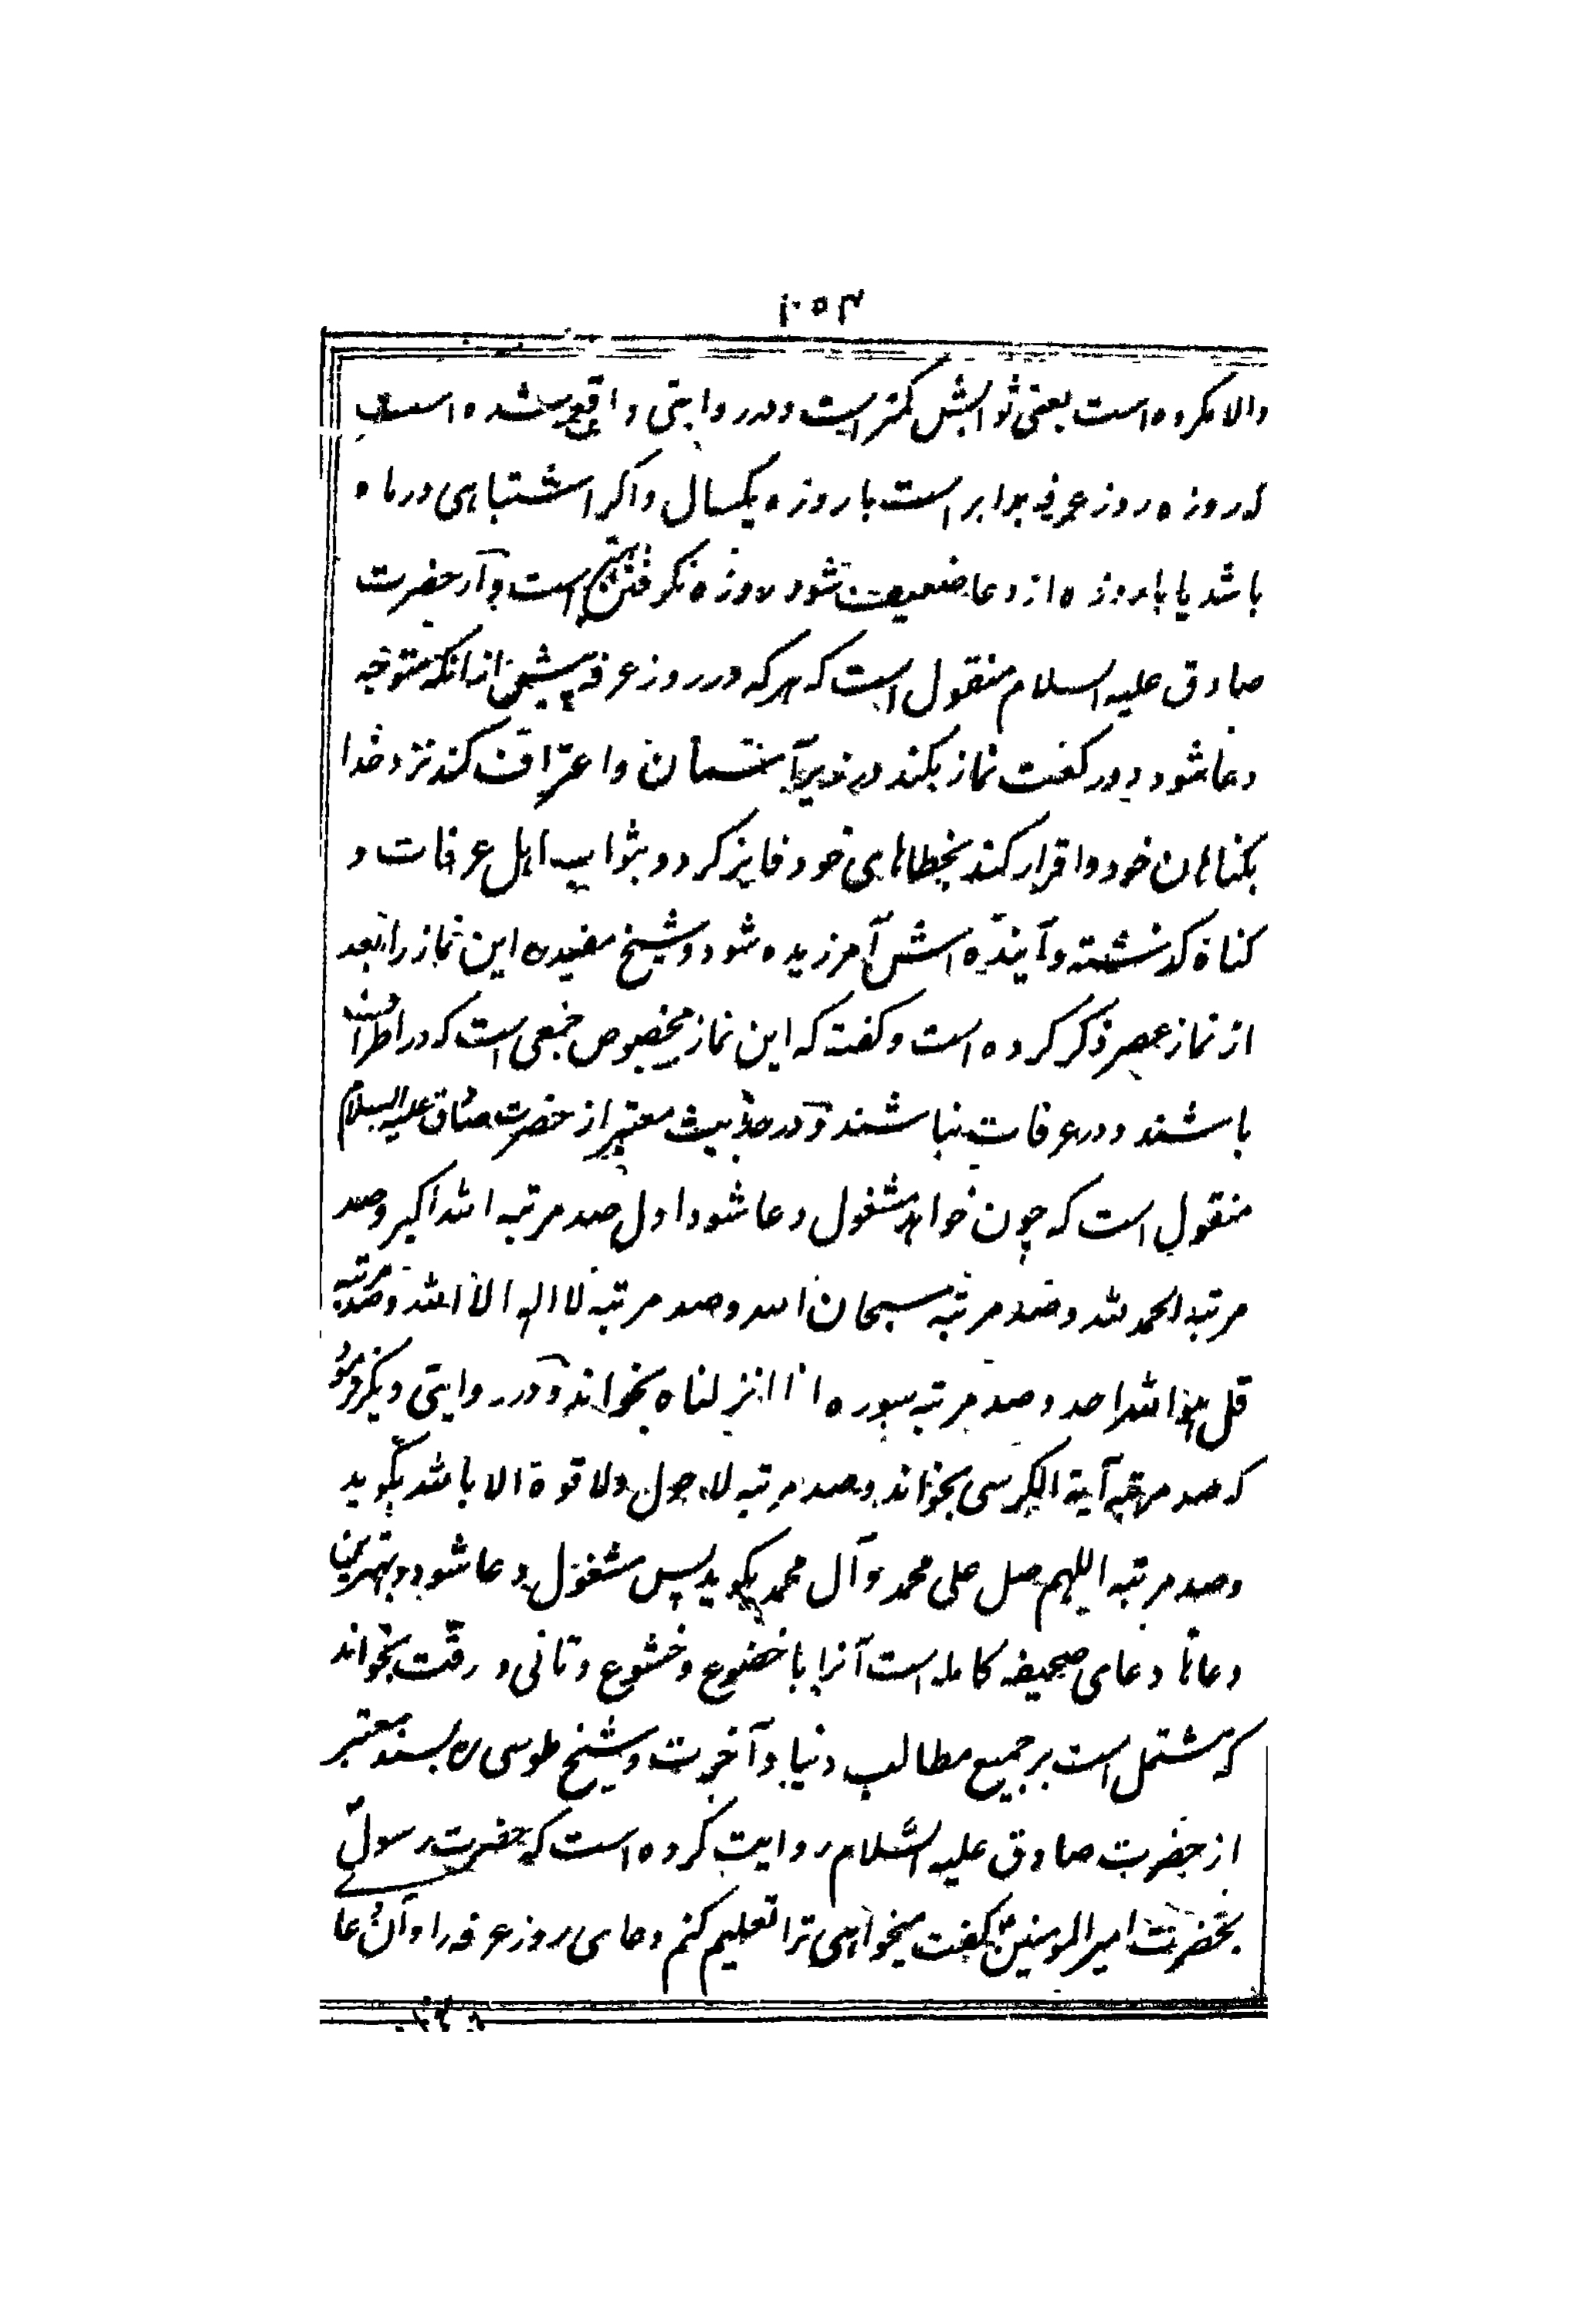 ۱۰۵۳
والا مکروه است یعنی ثوابش کمتر است و در روایتی واقع شده است
که روزه روز عرفه برابر است با روزه یکسال و اکر اشتباهی در ماه
باشد یا با روزه از دعا ضعیف شود روزه نکرفتن بهتر است و از حضرت
صادق علیه السلام منقول است که هر که در روز عرفه پیش از انکه متوجه
دعا شود دو رکعت نماز بکند در زیر آسمان و اعتراف کند نزد خدا
بکناهان خود و اقرار کند بخطاهای خود فایز کردد بثواب اهل عرفات و
کناه کذشته و آینده اش آمرزیده شود و شیخ مفید ره این نماز را بعد
از نماز عصر ذکر کرده است و کفته که این نماز مخصوص جمعی است که در اطراف
باشند و در عرفات نباشند و در حدیث معتبر از حضرت صادق علیه السلام
منقول است که چون خواهد مشغول دعا شود اول صد مرتبه الله اکبر و صد
مرتبه الحمد لله و صد مرتبه سبحان الله و صد مرتبه لا اله الا الله و صد مرتبه
قل هو الله احد و صد مرتبه سوره انا انزلناه بخواند و در روایتی دیکر فرمود
که صد مرتبه آیة الکرسی بخواند و صد مرتبه لا حول ولا قوة الا بالله بکوید
و صد مرتبه اللهم صل علی محمد و آل محمد بکوید پس مشغول دعا شود و بهترین
دعاها دعای صحیفه کامله است آنرا با خضوع و خشوع و تانی و رقت بخواند
که مشتمل است بر جمیع مطالب دنیا و آخرت و شیخ طوسی ره بسند معتبر
از حضرت صادق علیه السلام روایت کرده است که حضرت رسول ص
بحضرت امیر المومنین ع کفت میخواهی ترا تعلیم کنم دعای روز عرفه را و آن دعا